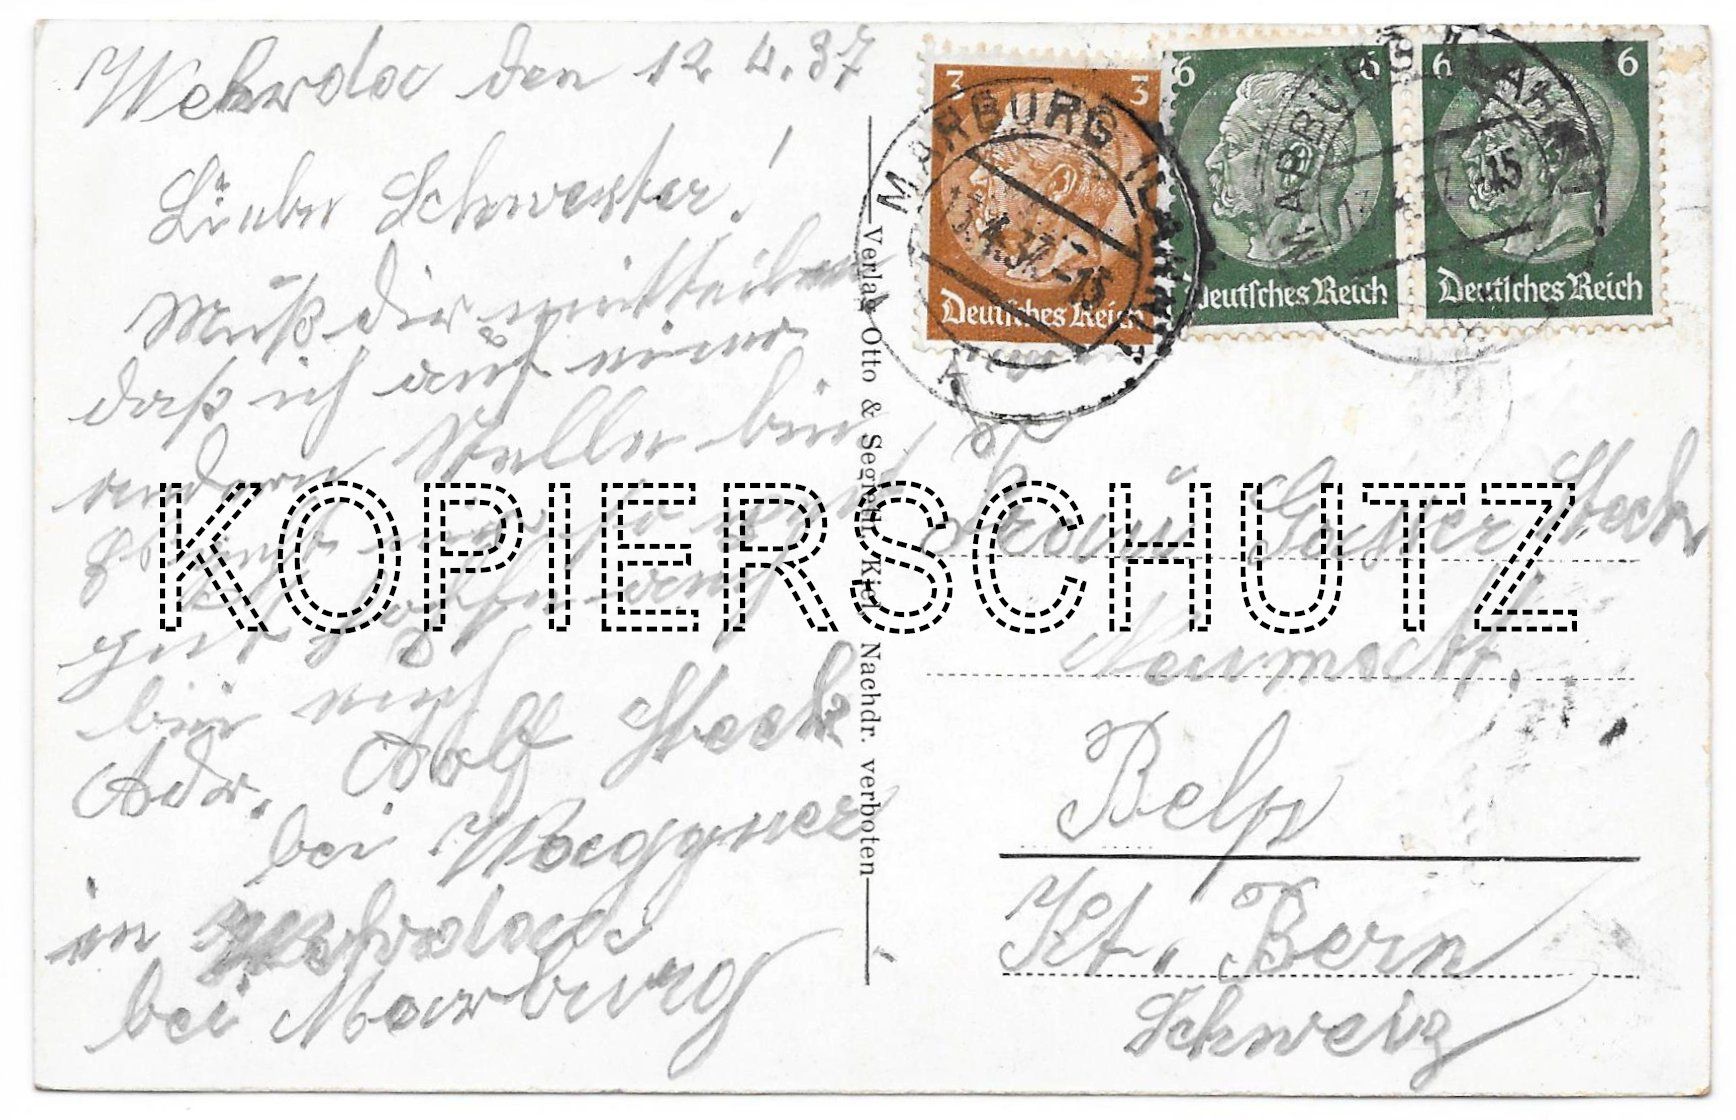 Wehrda den 12.4.37
Liebe Schwester!
Muß dir mitteilen
daß ich auf einer
andern Stelle bin,
gut
bin ich
Adr. Adolf Steck
bei Waggner
in Wehrda
bei Marburg
Verlag Otto & Segreth, Kiel, Nachdr. verboten
3 3
Deutsches Reich
6 6
Deutsches Reich
6 6
Deutsches Reich
MARBURG (LAHN)
12.4.37.-15
MARBURG (LAHN)
-15
An
Frau Gasser Steck
Neumatt,
Belp
Kt. Bern
Schweiz
KOPIERSCHUTZ